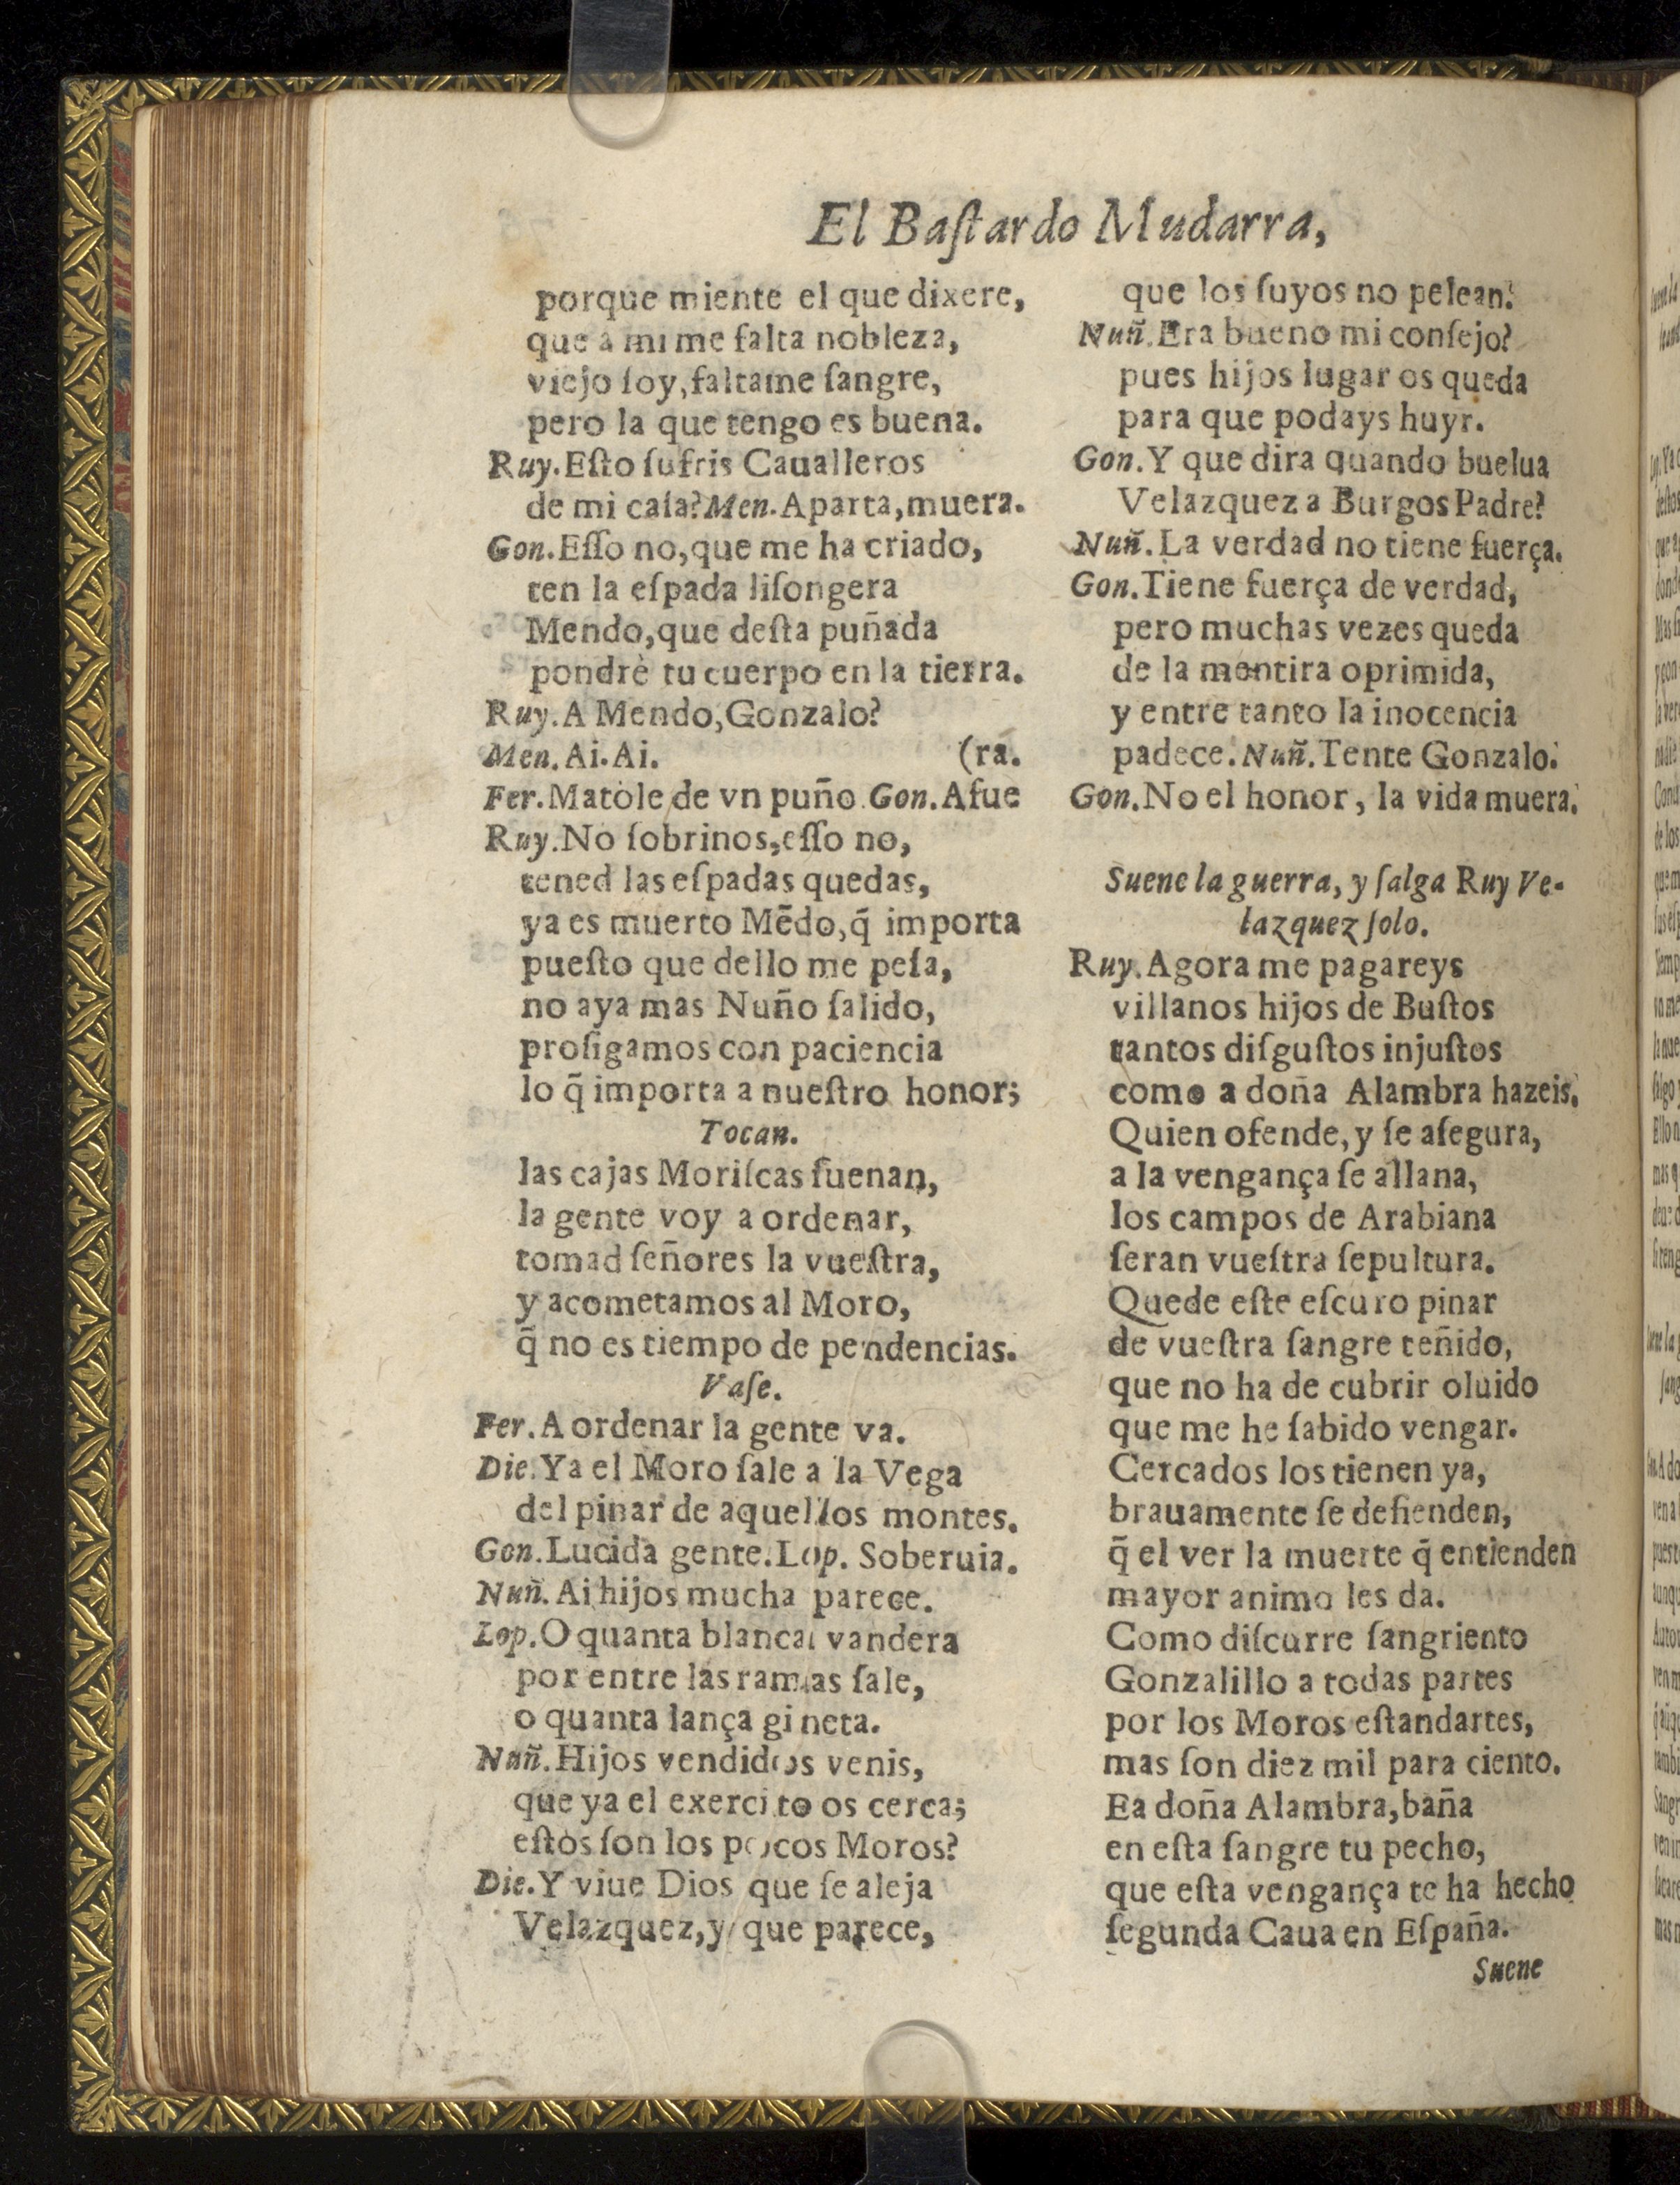 El Baſtardo Mudarra,
porque miente el que dixere,
que a mi me falta nobleza,
viejo ſoy, faltame ſangre,
pero la que tengo es buena.
Ruy. Eſto ſufris Caualleros
de mi caſa? Men. Aparta, muera.
Gon. Eſſo no, que me ha criado,
ten la eſpada liſongera
Mendo, que deſta puñada
pondrè tu cuerpo en la tierra.
Ruy. A Mendo, Gonzalo?
Men. Ai. Ai. (ra.
Fer. Matòle de vn puño. Gon. Afue
Ruy. No ſobrinos, eſſo no,
tened las eſpadas quedas,
ya es muerto Mẽdo, q̃ importa
pueſto que dello me peſa,
no aya mas Nuño ſalido,
proſigamos con paciencia
lo q̃ importa a nueſtro honor;
Tocan.
las cajas Moriſcas ſuenan,
la gente voy a ordenar,
tomad ſeñores la vueſtra,
y acometamos al Moro,
q̃ no es tiempo de pendencias.
Vaſe.
Fer. A ordenar la gente va.
Die. Ya el Moro ſale a la Vega
del pinar de aquellos montes.
Gon. Lucida gente. Lop. Soberuia.
Nuñ. Ai hijos mucha parece.
Lop. O quanta blanca vandera
por entre las ramas ſale,
o quanta lança gineta.
Nuñ. Hijos vendidos venis,
que ya el exercito os cerca;
eſtos ſon los pocos Moros?
Die. Y viue Dios que ſe aleja
Velazquez, y que parece,
que los ſuyos no pelean.
Nuñ. Era bueno mi conſejo?
pues hijos lugar os queda
para que podays huyr.
Gon. Y que dira quando buelua
Velazquez a Burgos Padre?
Nuñ. La verdad no tiene fuerça.
Gon. Tiene fuerça de verdad,
pero muchas vezes queda
de la mentira oprimida,
y entre tanto la inocencia
padece. Nuñ. Tente Gonzalo.
Gon. No el honor, la vida muera.
Suene la guerra, y ſalga Ruy Ve-
lazquez ſolo.
Ruy. Agora me pagareys
villanos hijos de Buſtos
tantos diſguſtos injuſtos
como a doña Alambra hazeis.
Quien ofende, y ſe aſegura,
a la vengança ſe allana,
los campos de Arabiana
ſeran vueſtra ſepultura.
Quede eſte eſcuro pinar
de vueſtra ſangre teñido,
que no ha de cubrir oluido
que me he ſabido vengar.
Cercados los tienen ya,
brauamente ſe defienden,
q̃ el ver la muerte q̃ entienden
mayor animo les da.
Como diſcurre ſangriento
Gonzalillo a todas partes
por los Moros eſtandartes,
mas ſon diez mil para ciento.
Ea doña Alambra, baña
en eſta ſangre tu pecho,
que eſta vengança te ha hecho
ſegunda Caua en Eſpaña.
Suene